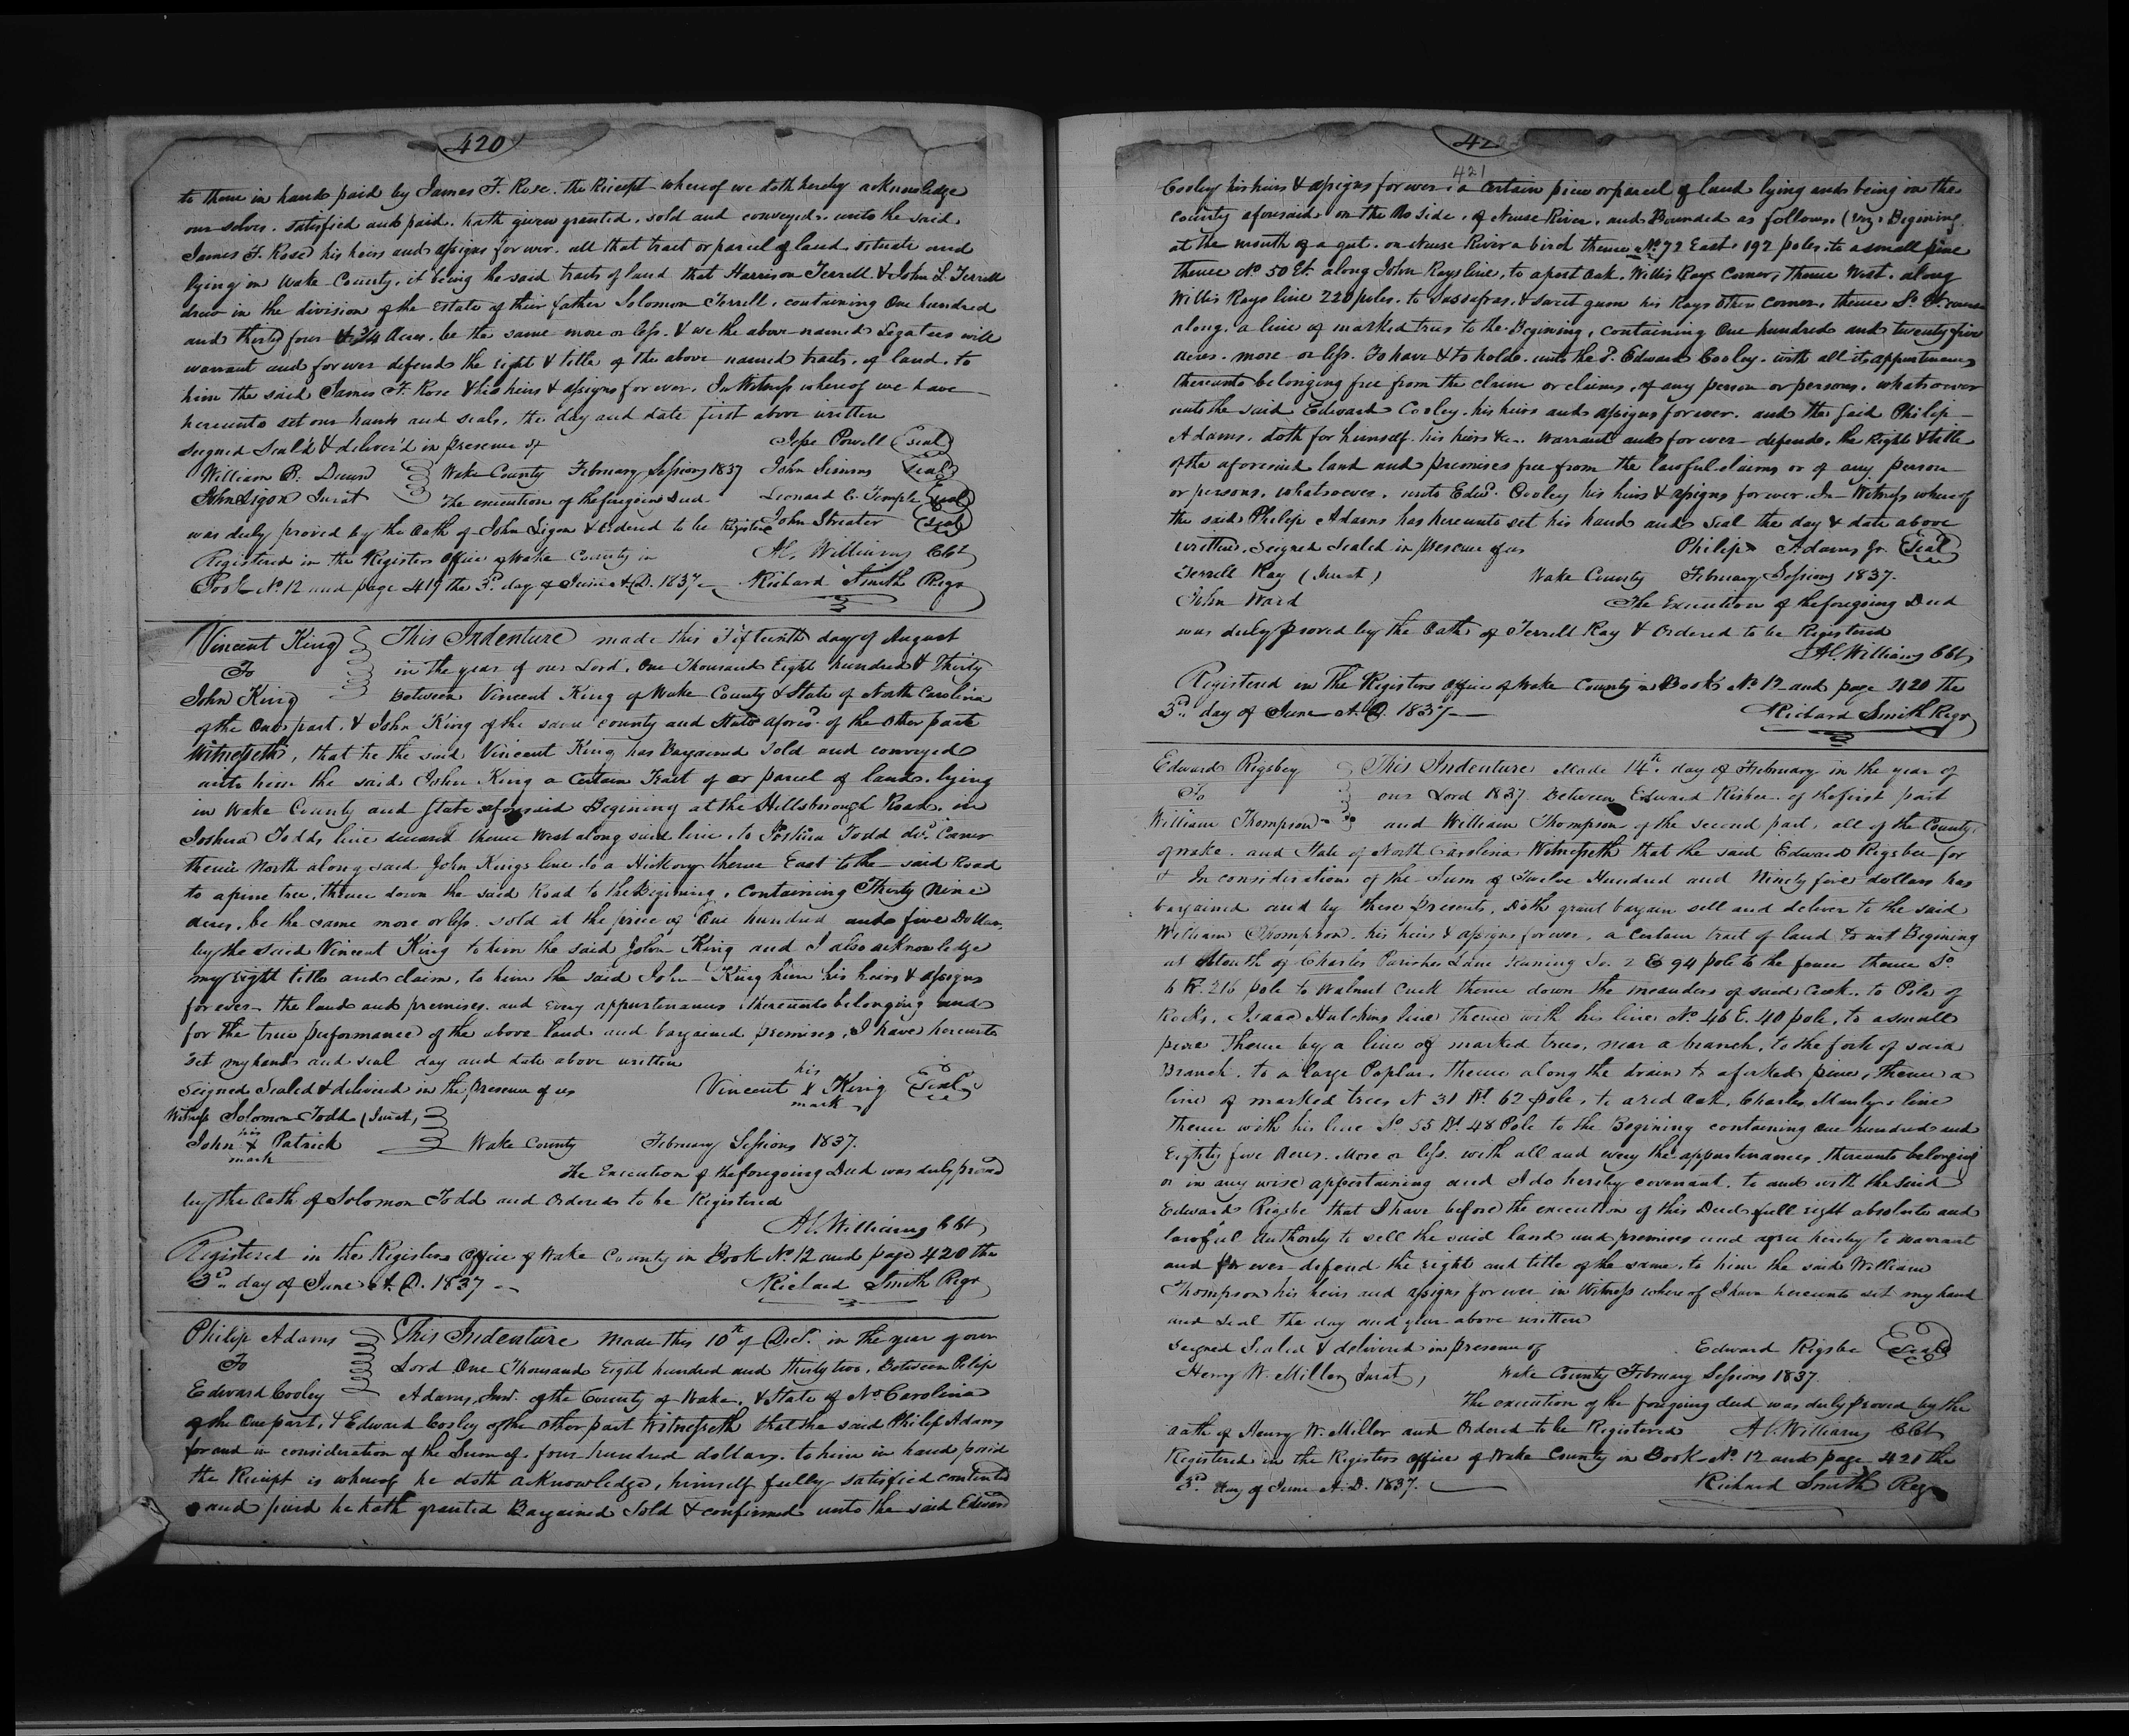 420
to them in hand paid by James F. Rose. the Receipt whereof we doth hereby acknowledge
our selves. satisfied and paid. hath given granted. sold and conveyed. unto the said
James F. Rose his heirs and assigns for ever. all that tract or parcel of land situate and
lying in Wake County, it being the said tracts of land that Harrison Terrell & John L. Terrell
drew in the division of the Estate of their father Solomon Terrell, containing One hundred
and thirty four & 3/4 Acres. be the same more or less. & we the above named Legatees will
warrant and for ever defend the right & title of the above named tracts. of land. to
him the said James F. Rose & his heirs & assigns for ever. In Witness whereof we have
hereunto set our hands and seals. the day and date first above written
Seigned Seal'd & deliver'd in presence of Jesse Powell (Seal)
William B. Dunn Wake County February Sessions 1837 John Simms (Seal)
John Ligon Jurat The execution of the foregoing Deed Leonard C. Temple (Seal)
was duly proved by the Oath of John Ligon & Ordered to be Registered John Streater (Seal)
Registered in the Registers Office of Wake County in Al. Williams Clk
Book No. 12 and page 419 the 3d. day of June A.D. 1837 Richard Smith Regr
Vincent King This Indenture made this Fifteenth day of August
To in the year of our Lord. One Thousand Eight hundred & Thirty
John King Between Vincent King of Wake County & State of North Carolina
of the One part. & John King of the same County and State afores'd. of the Other part
Witnesseth, that he the said Vincent King has Bargained Sold and conveyed
unto him the said John King a Certain Tract of or parcel of land. lying
in Wake County and State aforesaid Begining at the Hillsborough Road. in
Joshua Todds line deceased thence West along said line. to Joshua Todd dec'd. Corner
thence North along said John Kings line to a Hickory thence East to the said Road
to a pine tree, thence down the said Road to the Begining. Containing Thirty Nine
acres, be the same more or less. sold at the price of One hundred and five Dollars.
by the said Vincent King to him the said John King and I also acknowledge
my right title and claim, to him the said John King him his heirs & assigns
for ever the land and premises. and Every appurtenances thereunto belonging and
for the true performance of the above land and bargained premises, I have hereunto
set my hand and seal day and date above written
Seigned Sealed & delivered in the presence of us Vincent his X mark King (Seal)
Witness Solomon Todd (Jurat)
John his X mark Patrick Wake County February Sessions 1837.
The Execution of the foregoing Deed was duly proved
by the Oath of Solomon Todd and Ordered to be Registered
Al. Williams Clk
Registered in the Registers Office of Wake County in Book No. 12 and page 420 the
3d. day of June A.D. 1837 Richard Smith Regr
Philip Adams This Indenture Made this 10th of Dect. in the year of our
To Lord One Thousand Eight hundred and thirty two. Between Pelip
Edward Cooley Adams, Junr. of the County of Wake. & State of No. Carolina
of the One part. & Edward Cooley of the other part Witnesseth that the said Philip Adams
for and in consideration of the Sum of. four hundred dollars. to him in hand paid
the Receipt is whereof he doth acknowledge, himself fully satisfied contented
and paid he hath granted Bargained Sold & confirmed unto the said Edward
421
Cooley his heirs & assigns for ever. a Certain piece or parcel of land lying and being in the
county aforesaid on the No side, of Neuse River. and Bounded as follows. (Viz) Begining
at the mouth of a gut. on Neuse River a birch thence No. 72 East. 192 poles. to a small pine
thence No 50 Et. along John Rays line, to a post oak. Willis Rays Corner, thence West. along
Willis Rays line 220 poles. to Sassafras. & Sweet gum his Rays other Corner. thence So. Wt.
along. a line of marked trees to the Begining, containing One hundred and twenty five
acres. more or less. To have & to hold. unto the sd. Edward Cooley. with all its appurtenances
thereunto belonging free from the claim or claims, of any person or persons. whatsoever
unto the said Edward Cooley. his heirs and assigns for ever. and the said Philip
Adams. doth for himself his heirs &c. Warrant and for ever defend. the Right & title
of the aforesaid land and premises free from the lawful claims or of any person
or persons. whatsoever. unto Edwd. Cooley his heirs & assigns for ever. In Witness whereof
the said Philip Adams has hereunto set his hand and Seal the day & date above
written. Seigned Sealed in presence of us Philip Adams Jr. (Seal)
Terrell Ray (Jurat) Wake County February Sessions 1837.
John Ward The Execution of the foregoing Deed
was duly proved by the Oath of Terrell Ray & Ordered to be Registered
Al. Williams Clk
Registered in The Registers Office of Wake County in Book No. 12 and page 420 The
3d. day of June A.D. 1837 Richard Smith Regr
Edward Rigsbey This Indenture Made 14th. day of February in the year of
To our Lord 1837 Between Edward Risbee of the first part
William Thompson and William Thompson of the second part, all of the County
of Wake. and State of North Carolina Witnesseth that the said Edward Rigsbee for
& In consideration of the Sum of Twelve Hundred and Ninety five dollars has
bargained and by these presents, Doth grant bargain sell and deliver to the said
William Thompson. his heirs & assigns for ever, a Certain tract of land to wit Begining
at Mouth of Charles Parishes Lane Running So. 2 E 94 pole to the fence thence So.
6 W. 216 pole to Walnut Creek thence down the meanders of said Creek. to Pile of
Rocks, Isaac Hutchins line thence with his line No. 46 E. 40 pole, to a small
pine Thence by a line of marked trees, near a branch, to the fork of said
Branch. to a large Poplar. thence along the drain to a forked pine, Thence a
line of marked trees N 31 Wt. 62 pole, to a red Oak, Charles Manly's line
Thence with his line So. 55 Wt. 48 Pole to the Begining containing One hundred and
Eighty five Acres. More or less. with all and every the appurtenances. thereunto belonging
or in any wise appertaining and I do hereby covenant. to and with the said
Edward Rigsbe that I have before the execution of this Deed full right absolute and
lawful Authority to sell the said land and premises and agree hereby to warrant
and for ever defend the right and title of the same. to him the said William
Thompson his heirs and assigns for ever in Witness whereof I have hereunto set my hand
and seal the day and year above written
Seigned Sealed & delivered in presence of Edward Rigsbe (Seal)
Henry W. Miller Jurat, Wake County February Sessions 1837.
The execution of the foregoing deed was duly proved by the
oath of Henry W. Miller and Ordered to be Registered Al. Williams Clk
Registered in the Registers Office of Wake County in Book No. 12 and page 421 the
3d. day of June A.D. 1837. Richard Smith Regr